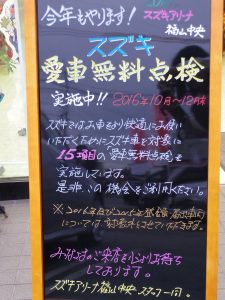 今年もやります!
スズキアリーナ
福山中央
スズキ
愛車無料点検
実施中!! 2016年10月〜12月末
スズキではお車をより快適にお使い
いただくためにスズキ車を対象に
15項目の愛車無料点検を
実施しています。
是非この機会をご利用ください。
については対象外とさせていただきます。
みなさまのご来店を心よりお待ち
しております。
スズキアリーナ福山中央 スタッフ一同。